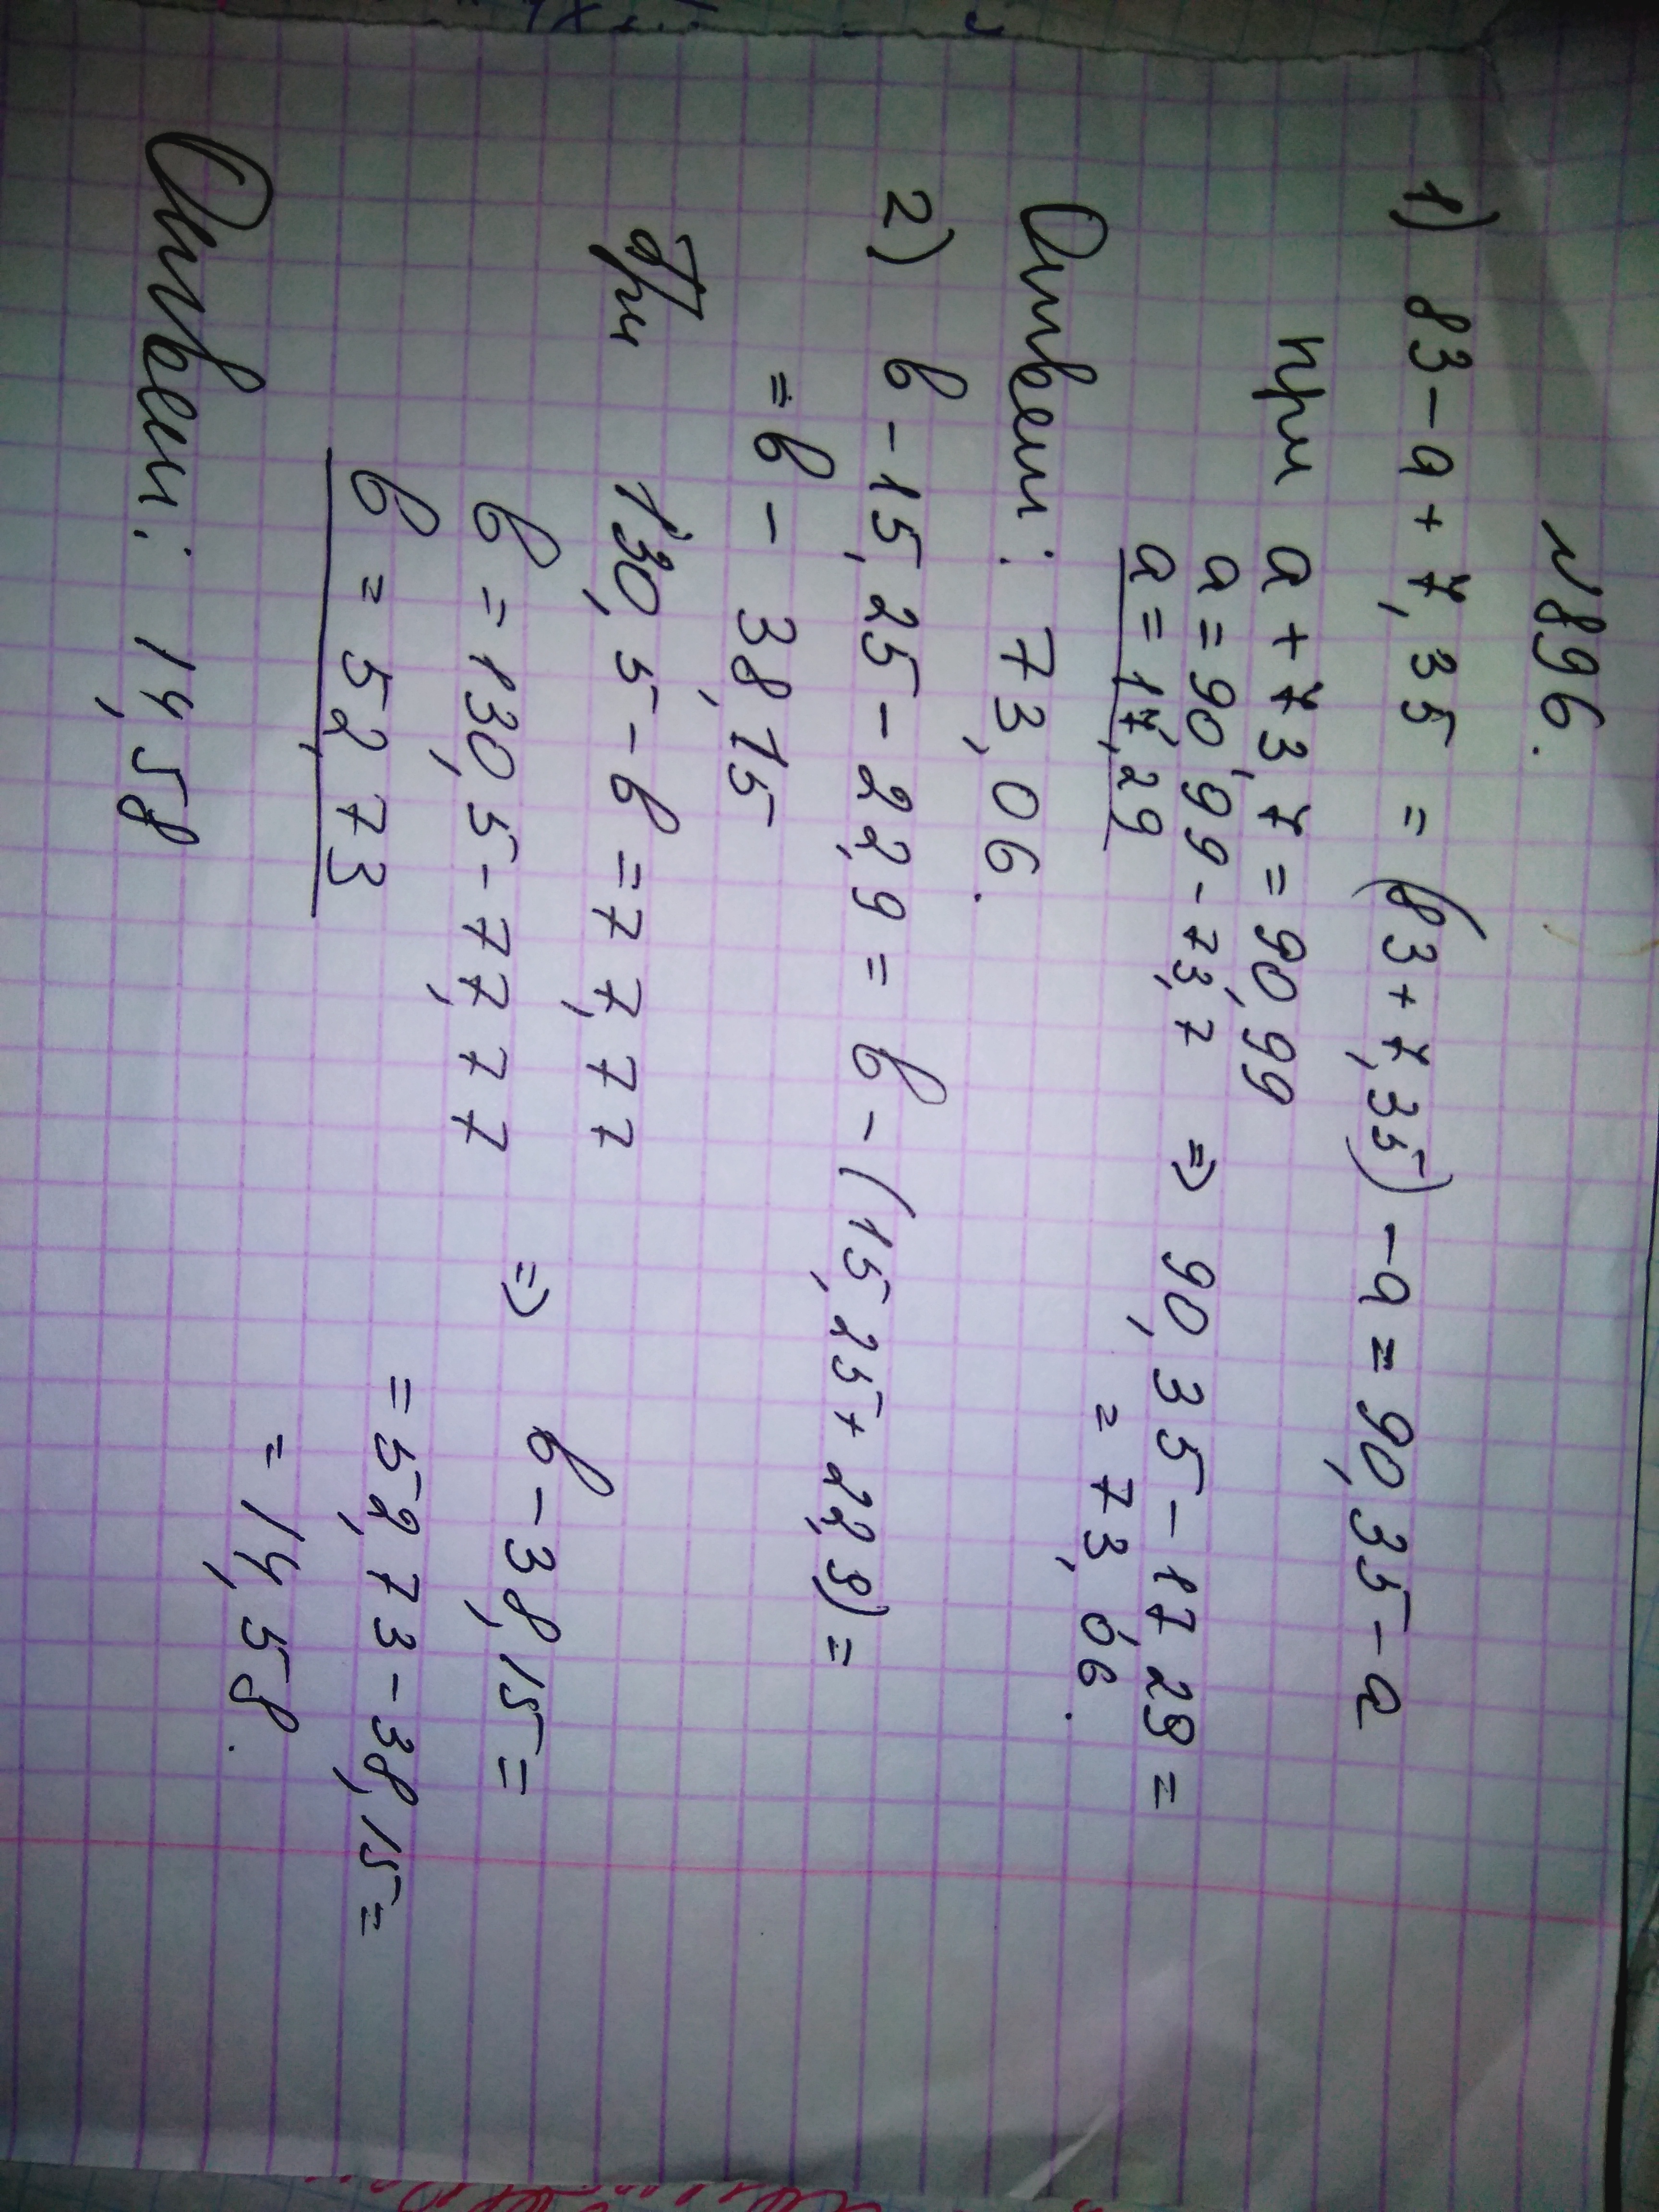 N896.
1) 83-a+7,35 = (83+7,35)-a=90,35-a
при a+73,7=90,99
a=90,99-73,7 ⇒ 90,35-17,29=
a=17,29
= 73,06.
Ответ: 73,06.
2) b-15,25-22,9= b-(15,25+22,9)=
=b-38,15
При 130,5-b=77,77
b=130,5-77,77 ⇒ b-38,15=
b=52,73
=52,73-38,15=
=14,58.
Ответ: 14,58